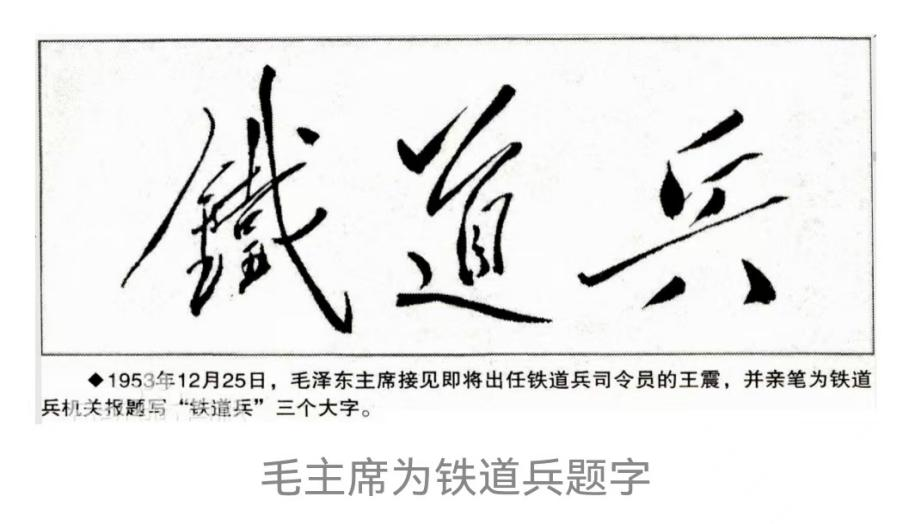 鐵道兵
◆1953年12月25日，毛泽东主席接见即将出任铁道兵司令员的王震，并亲笔为铁道
兵机关报题写“铁道兵”三个大字。
毛主席为铁道兵题字